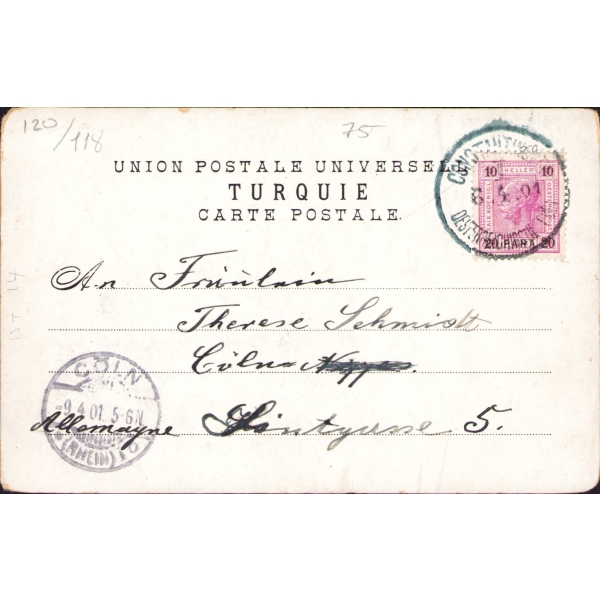 120
/118
75
UNION POSTALE UNIVERSELLE
TURQUIE
CARTE POSTALE.
10 HELLER 10
20 PARA 20
CONSTANTINO
5 01
An Fräulein
Therese Schmidt
Cöln
Allemagne
5.
CÖLN
-9.4.01. 5-6N
(RHEIN)